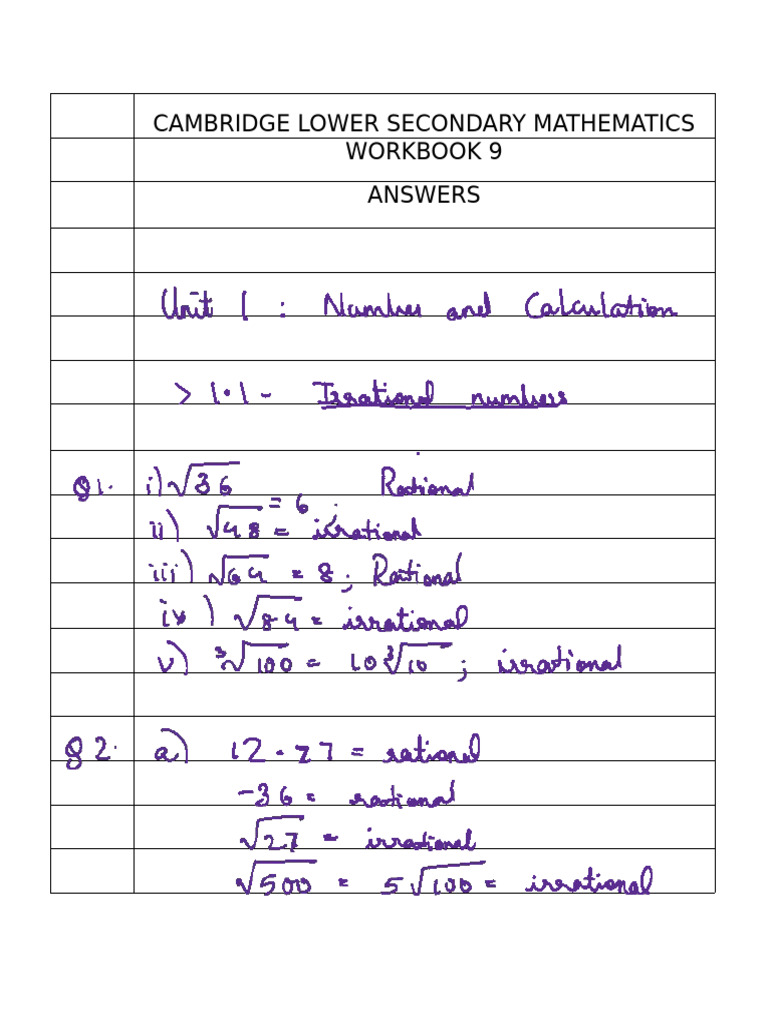 CAMBRIDGE LOWER SECONDARY MATHEMATICS
WORKBOOK 9
ANSWERS
Unit 1 : Number and Calculation
> 1.1 - Irrational numbers
Q1. i) √36 = 6 ; Rational
ii) √48 = irrational
iii) √64 = 8 ; Rational
iv) √84 = irrational
v) ³√100 = 10³√10 ; irrational
Q2. a) 12.27 = rational
-36 = rational
√27 = irrational
√500 = 5√100 = irrational